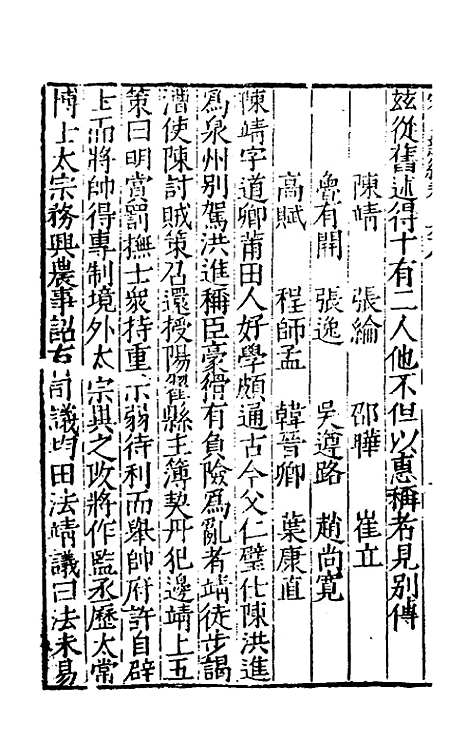 茲從舊述得十有二人他不但以惠稱者見別傳
陳靖 張綸 邵曄 崔立
魯有開 張逸 吳遵路 趙尚寬
高賦 程師孟 韓晉卿 葉康直
陳靖字道卿莆田人好學頗通古今父仁璧仕陳洪進
爲泉州別駕洪進稱臣豪猾有負險爲亂者靖徒步謁
漕使陳討賊策召還授陽翟縣主簿契丹犯邊靖上五
策曰明賞罰撫士衆持重示弱待利而舉帥府許自辟
士而將帥得專制境外太宗異之改將作監丞歷太常
博士太宗務興農事詔有司議均田法靖議曰法未易